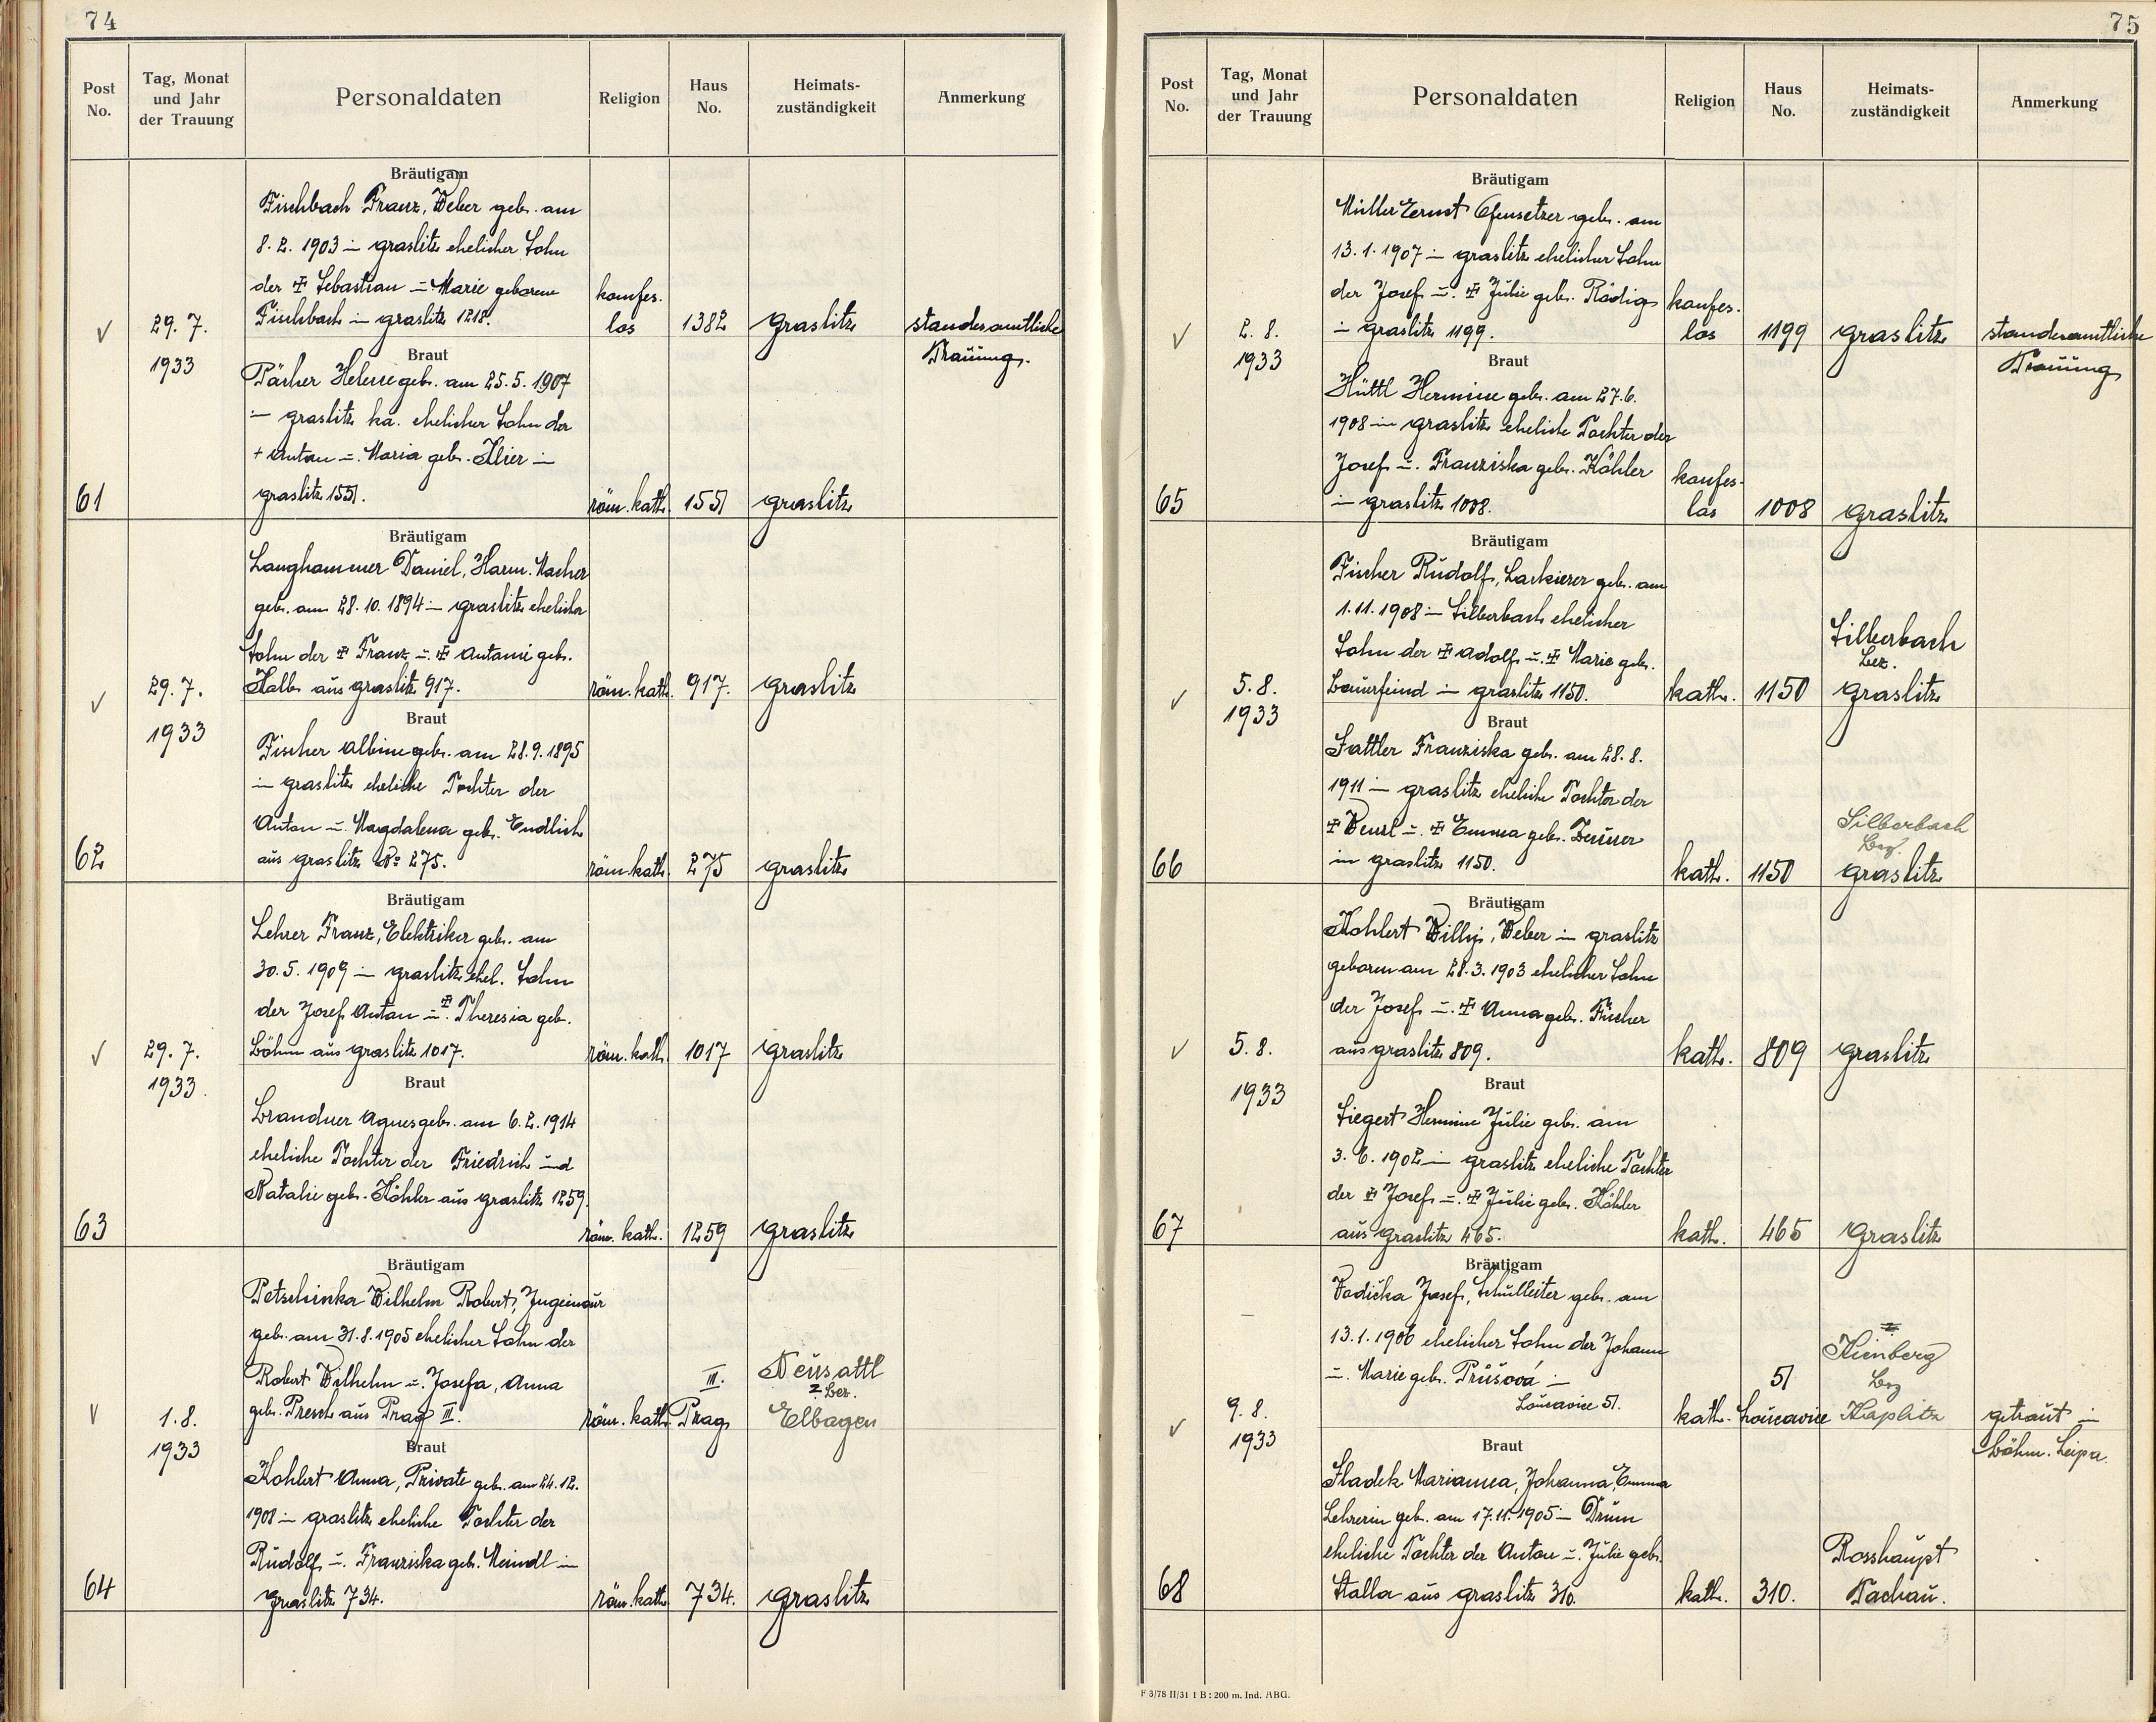 74
Post No.
Tag, Monat und Jahr der Trauung
Personaldaten
Religion
Haus No.
Heimats-zuständigkeit
Anmerkung
Bräutigam
Fischbach Franz, Weber geb. am
8. 2. 1903 in Graslitz ehelicher Sohn
der ‡ Sebastian u. Marie geborene
Fischbach in Graslitz 1218.
konfes.
los
1382
Graslitz
standesamtliche
Trauung.
√
29. 7.
1933
Braut
Pächer Helene geb. am 25. 5. 1907
in Graslitz ka. ehelicher Sohn der
+ Anton u. Maria geb. Klier in
Graslitz 1551.
61
röm. kath.
1551
Graslitz
Bräutigam
Langhammer Daniel, Harm. Macher
geb. am 28. 10. 1894 in Graslitz ehelicher
Sohn der ‡ Franz u. ‡ Antonie geb.
Kalb aus Graslitz 917.
√
29. 7.
1933
röm. kath.
917.
Graslitz
Braut
Fischer Albine geb. am 28. 9. 1895
in Graslitz eheliche Tochter der
Anton u. Magdalena geb. Endlich
aus Graslitz No 275.
62
röm. kath.
275
Graslitz
Bräutigam
Lehrer Franz, Elektriker geb. am
30. 5. 1909 in Graslitz ehel. Sohn
der Josef Anton u. ‡ Theresia geb.
Böhm aus Graslitz 1017.
√
29. 7.
1933.
röm. kath.
1017
Graslitz
Braut
Brandner Agnes geb. am 6. 2. 1914
eheliche Tochter der Friedrich und
Natalie geb. Köhler aus Graslitz 1259.
63
röm. kath.
1259
Graslitz
Bräutigam
Petschinka Wilhelm Robert, Ingeinöur
geb. am 31. 8. 1905 ehelicher Sohn der
Robert Wilhelm u. Josefa, Anna
geb. Presch aus Prag III.
√
1. 8.
1933
röm. kath.
III.
Prag
Neusattl
Bez.
Elbogen
Braut
Kohlert Anna, Private geb. am 24. 12.
1908 in Graslitz eheliche Tochter der
Rudolf u. Franziska geb. Meindl in
Graslitz 734.
64
röm. kath.
734.
Graslitz
75
Post No.
Tag, Monat und Jahr der Trauung
Personaldaten
Religion
Haus No.
Heimats-zuständigkeit
Anmerkung
Bräutigam
Müller Ernst Ofensetzer geb. am
13. 1. 1907 in Graslitz ehelicher Sohn
der Josef u. ‡ Julie geb. Rädig
in Graslitz 1199.
√
2. 8.
1933
konfes.
los
1199
Graslitz
standesamtliche
Trauung
Braut
Hüttl Hermine geb. am 27. 6.
1908 in Graslitz eheliche Tochter der
Josef u. Franziska geb. Köhler
in Graslitz 1008.
65
konfes.
los
1008
Graslitz
Bräutigam
Fischer Rudolf, Lackierer geb. am
1. 11. 1908 in Silberbach ehelicher
Sohn der ‡ Adolf u. ‡ Marie geb.
Bauerfeind in Graslitz 1150.
√
5. 8.
1933
kath.
1150
Silberbach
Bez.
Graslitz
Braut
Sattler Franziska geb. am 28. 8.
1911 in Graslitz eheliche Tochter der
‡ Wenzl u. ‡ Emma geb. Zeuner
in Graslitz 1150.
66
kath.
1150
Silberbach
Bez.
Graslitz
Bräutigam
Kohlert Willy, Weber in Graslitz
geboren am 28. 3. 1903 ehelicher Sohn
der Josef u. ‡ Anna geb. Fischer
aus Graslitz 809.
√
5. 8.
1933
kath.
809
Graslitz
Braut
Siegert Hermine Julie geb. am
3. 6. 1902 in Graslitz eheliche Tochter
der ‡ Josef u. ‡ Julie geb. Köhler
aus Graslitz 465.
67
kath.
465
Graslitz
Bräutigam
Vodička Josef, Schulleiter geb. am
13. 1. 1906 ehelicher Sohn der Johann
u. Marie geb. Průšová in
Loucavice 51.
√
9. 8.
1933
kath.
51
Loucavice
Kienberg
Bez
Kaplitz
getraut in
Böhm. Leipa.
Braut
Sladek Marianna, Johanna, Emma
Lehrerin geb. am 17. 11. 1905 in Drum
eheliche Tochter der Anton u. Julie geb.
Stalla aus Graslitz 310.
68
kath.
310.
Rosshaupt
Tachau.
F 3/78 II/31 I B: 200 m. Ind. ABG.